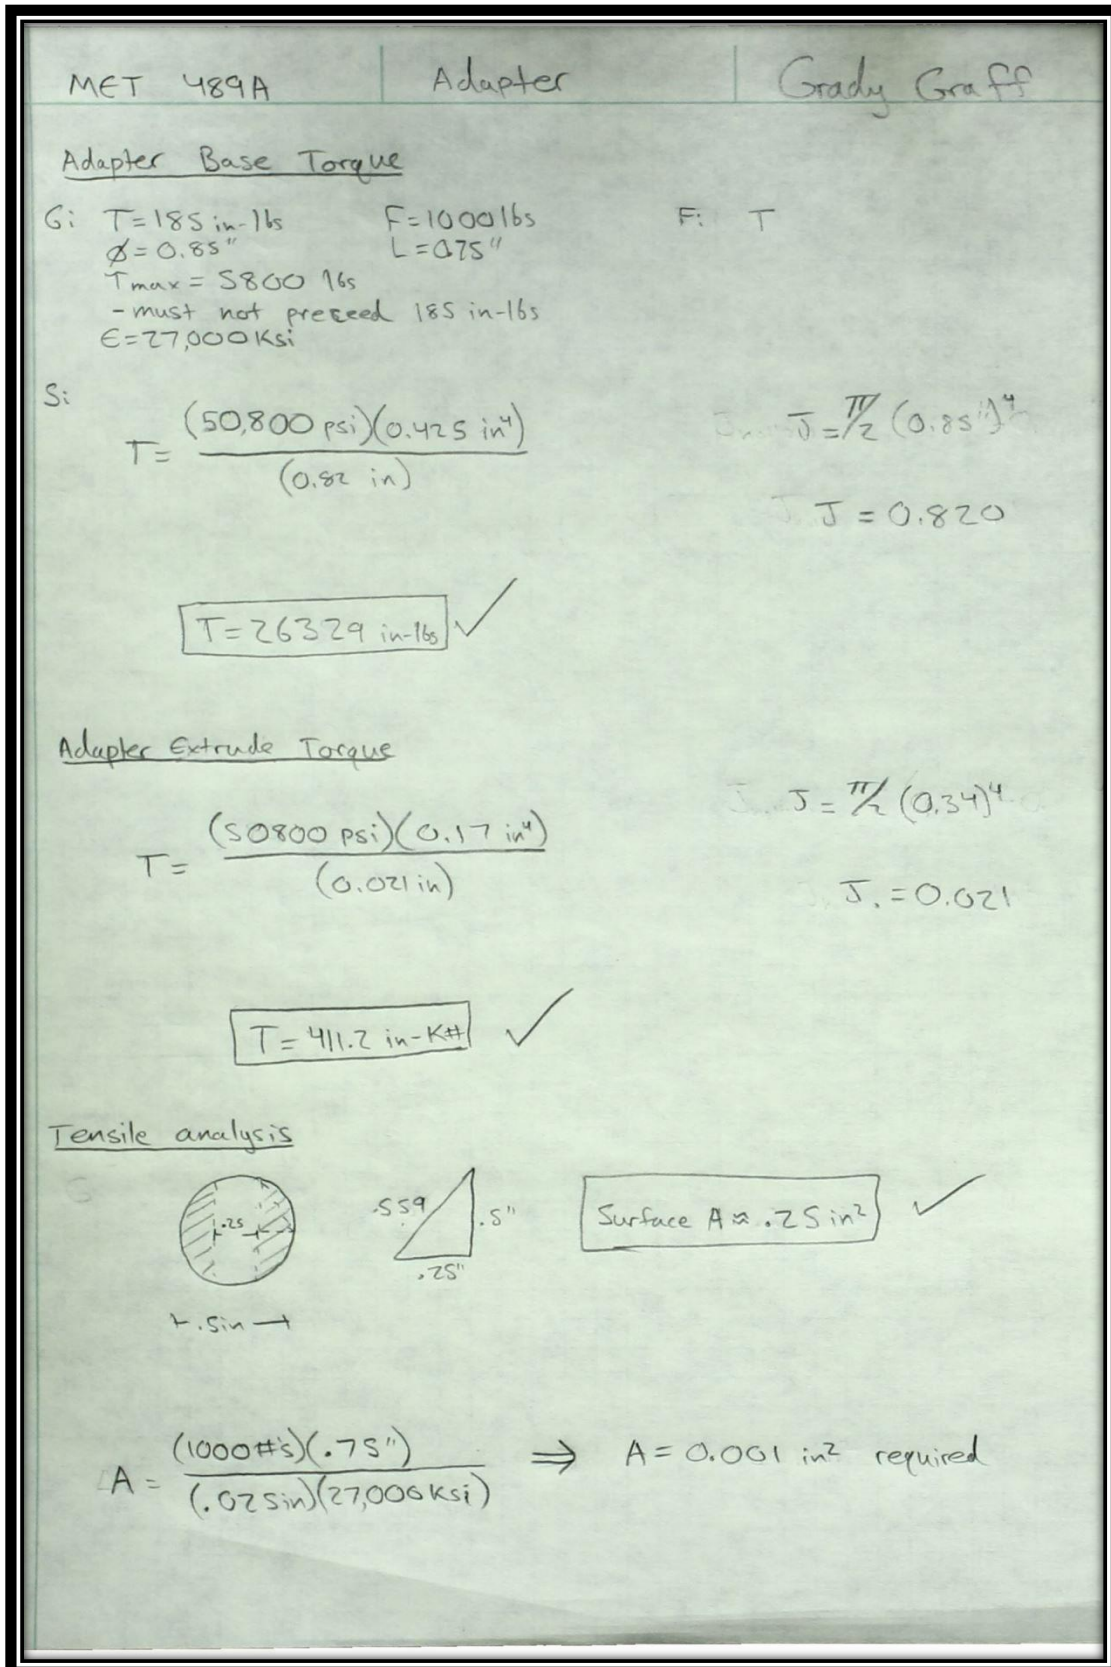 MET 489A Adapter Grady Graff
Adapter Base Torque
G: T=185 in-lbs F=1000lbs F: T
Ø=0.85" L=0.75"
Tmax = 5800 lbs
- must not preceed 185 in-lbs
E=27,000 Ksi
S:
T= (50,800 psi)(0.425 in⁴) / (0.82 in) J = π/2 (0.85")⁴
J = 0.820
T=26329 in-lbs ✓
Adapter Extrude Torque
T= (50800 psi)(0.17 in⁴) / (0.021 in) J = π/2 (0.34)⁴
J = 0.021
T= 411.2 in-K# ✓
Tensile analysis
.25 .559 .5" Surface A ≈ .25 in² ✓
.25"
.5in
A = (1000#'s)(.75") / (.025in)(27,000 Ksi) ⇒ A = 0.001 in² required